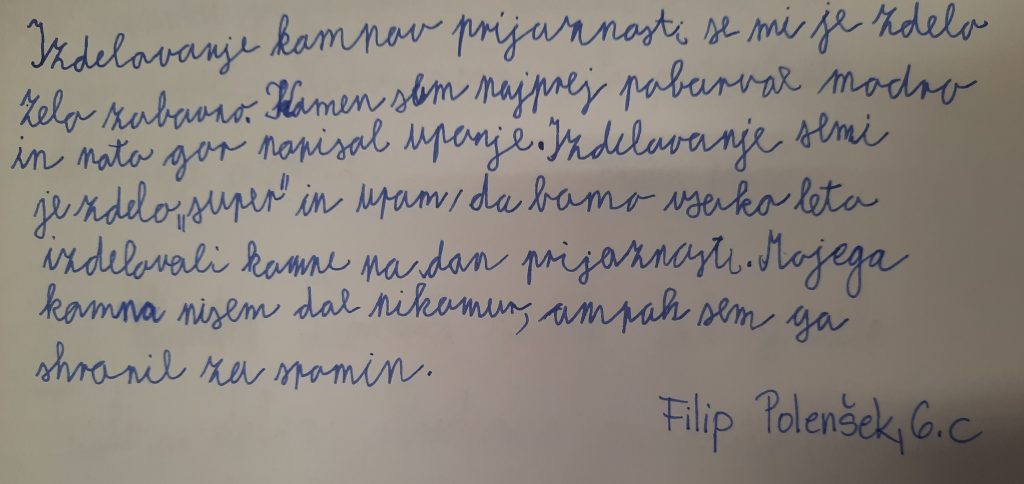 Izdelovanje kamnov prijaznosti se mi je zdelo
zelo zabavno. Kamen sem najprej pobarval modro
in nato gor napisal upanje. Izdelovanje semi
je zdelo „super" in upam, da bomo vsako leto
izdelovali kamne na dan prijaznosti. Mojega
kamna nisem dal nikomur, ampak sem ga
shranil za spomin.
Filip Polenšek, 6.c